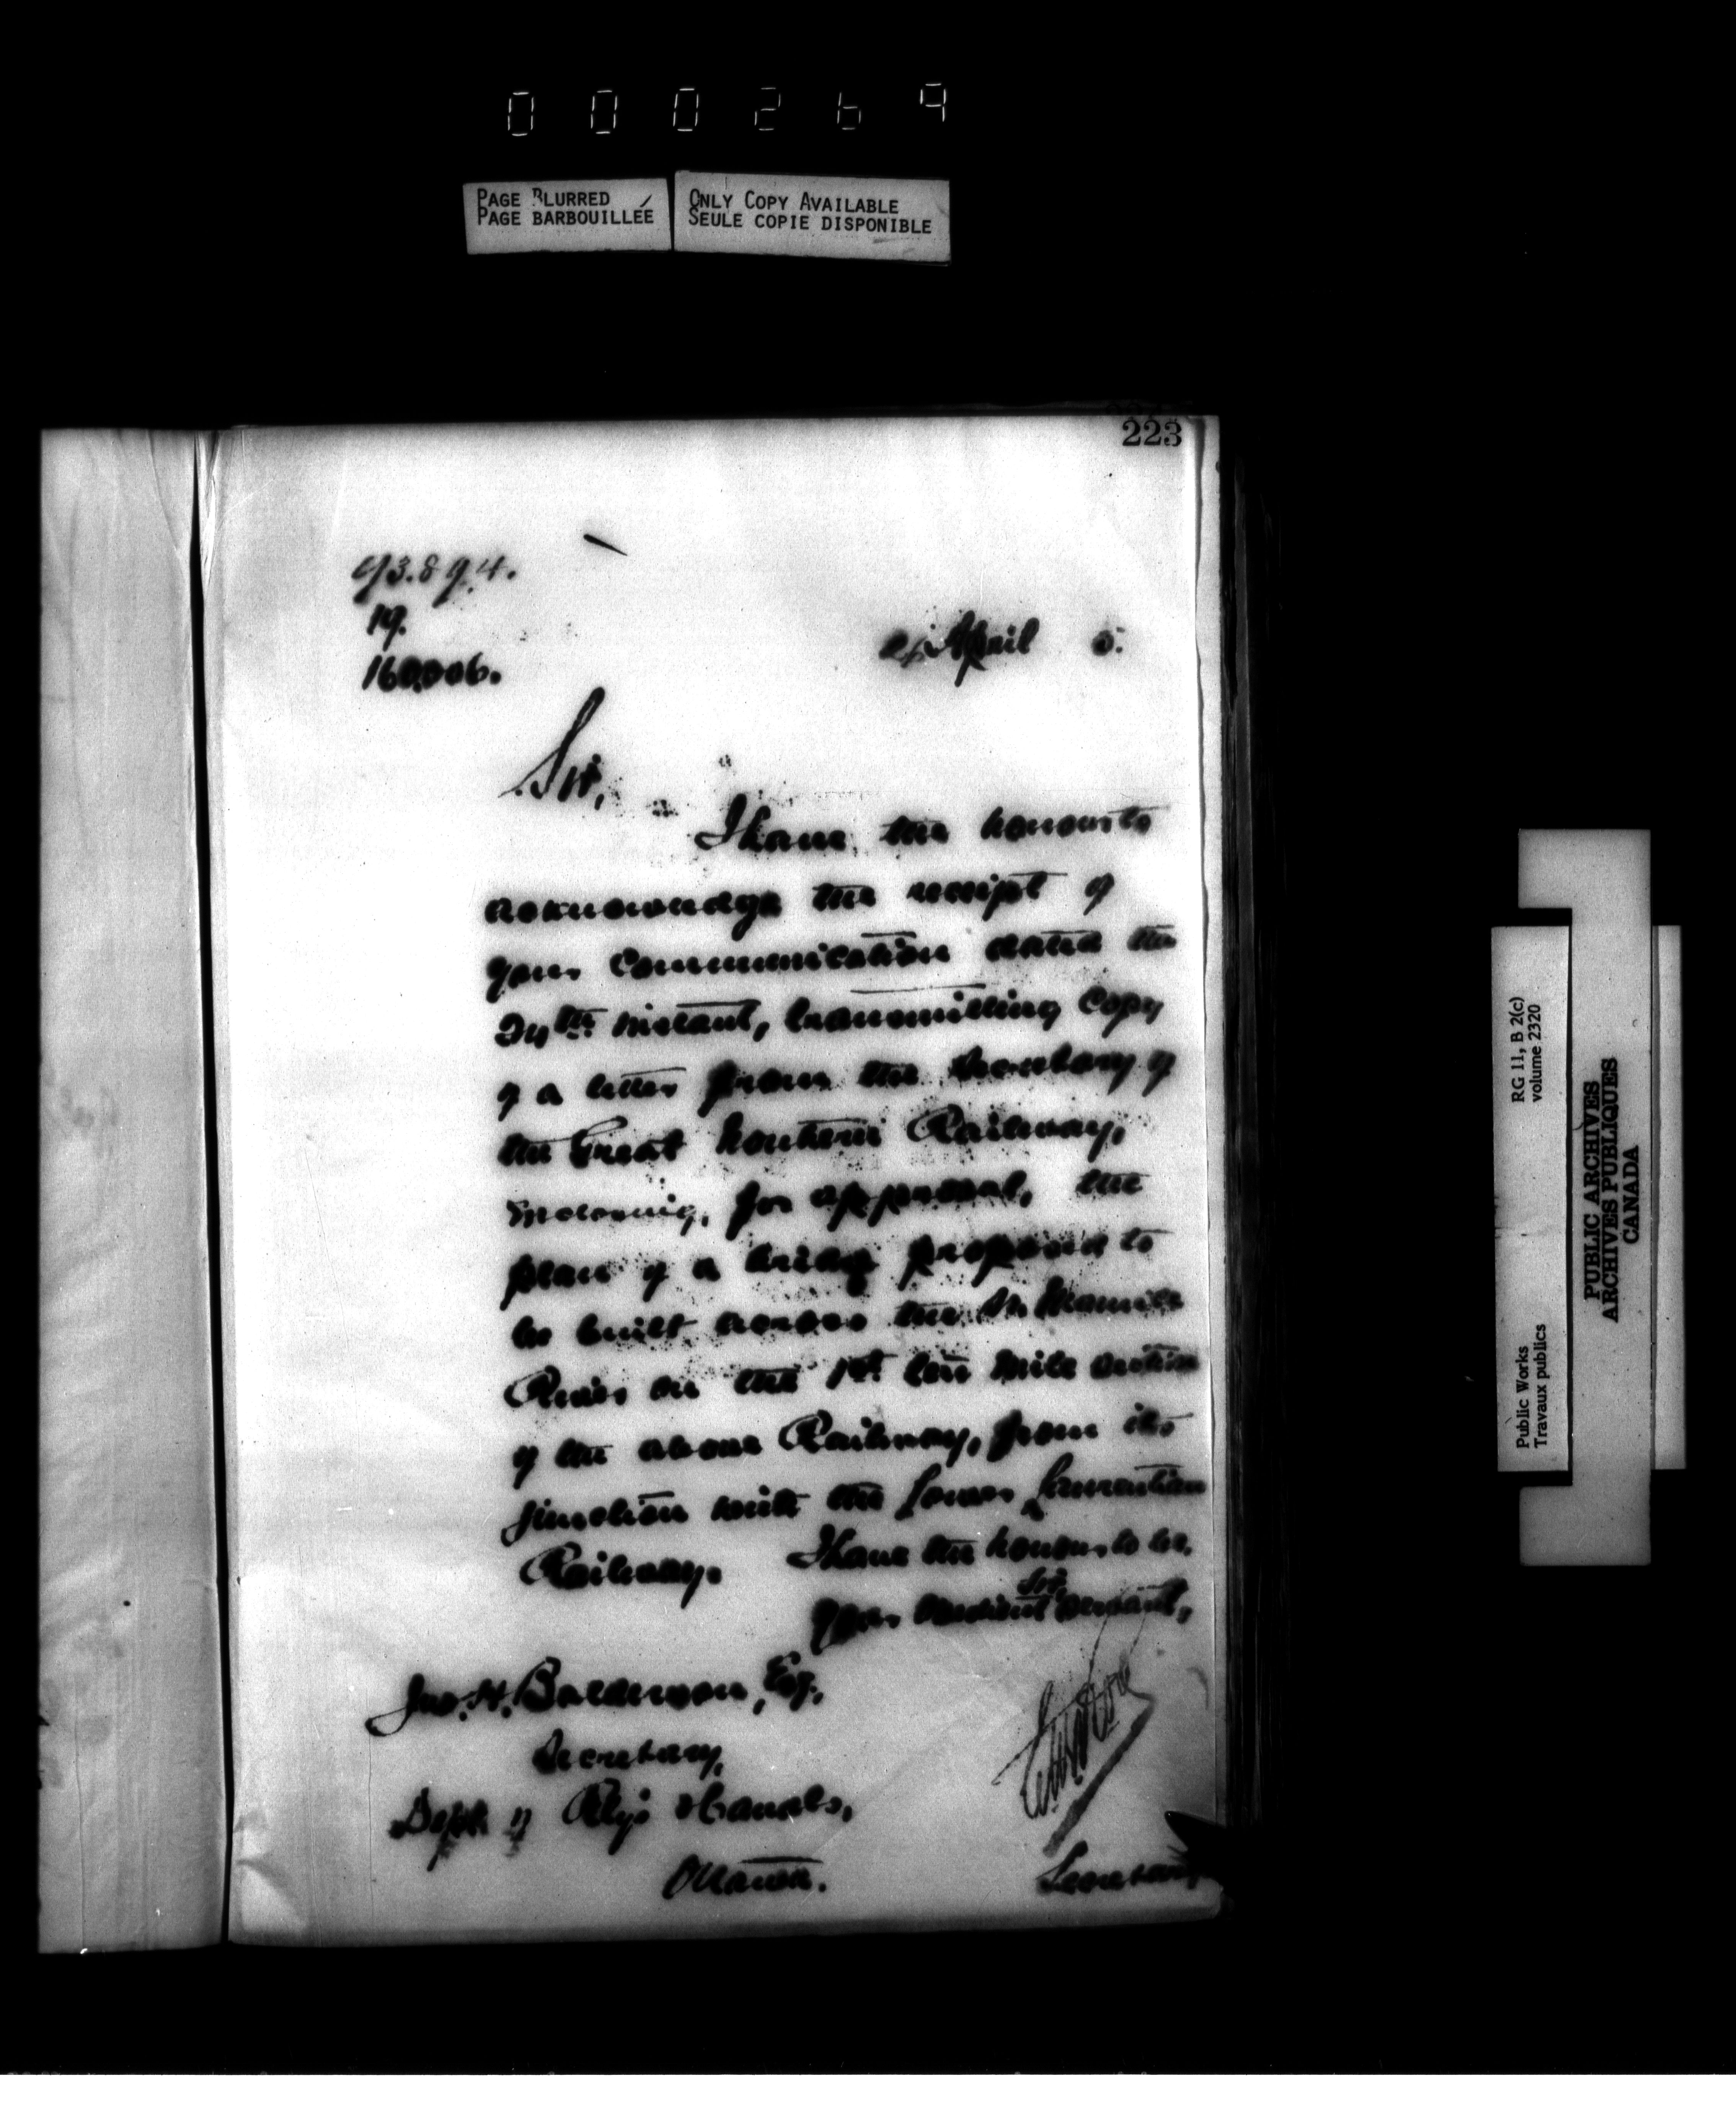 000269
PAGE BLURRED
PAGE BARBOUILLÉE
ONLY COPY AVAILABLE
SEULE COPIE DISPONIBLE
223
93.894.
19.
160,006.
April 5.
Sir,
I have the honour to
acknowledge the receipt of
your communication dated the
24th instant, transmitting copy
of a letter from the Secretary of
the Great Northern Railway,
enclosing, for approval, the
plan of a bridge proposed to
be built across the St. Maurice
River on the 1st ten mile section
of the above Railway, from its
junction with the Lower Laurentian
Railway.
I have the honour to be,
Sir,
Your obedient servant,
Jno. H. Balderson, Esq.,
Secretary,
Dept. of Rlys & Canals,
Ottawa.
Secretary
RG 11, B 2(c)
volume 2320
Public Works
Travaux publics
PUBLIC ARCHIVES
ARCHIVES PUBLIQUES
CANADA